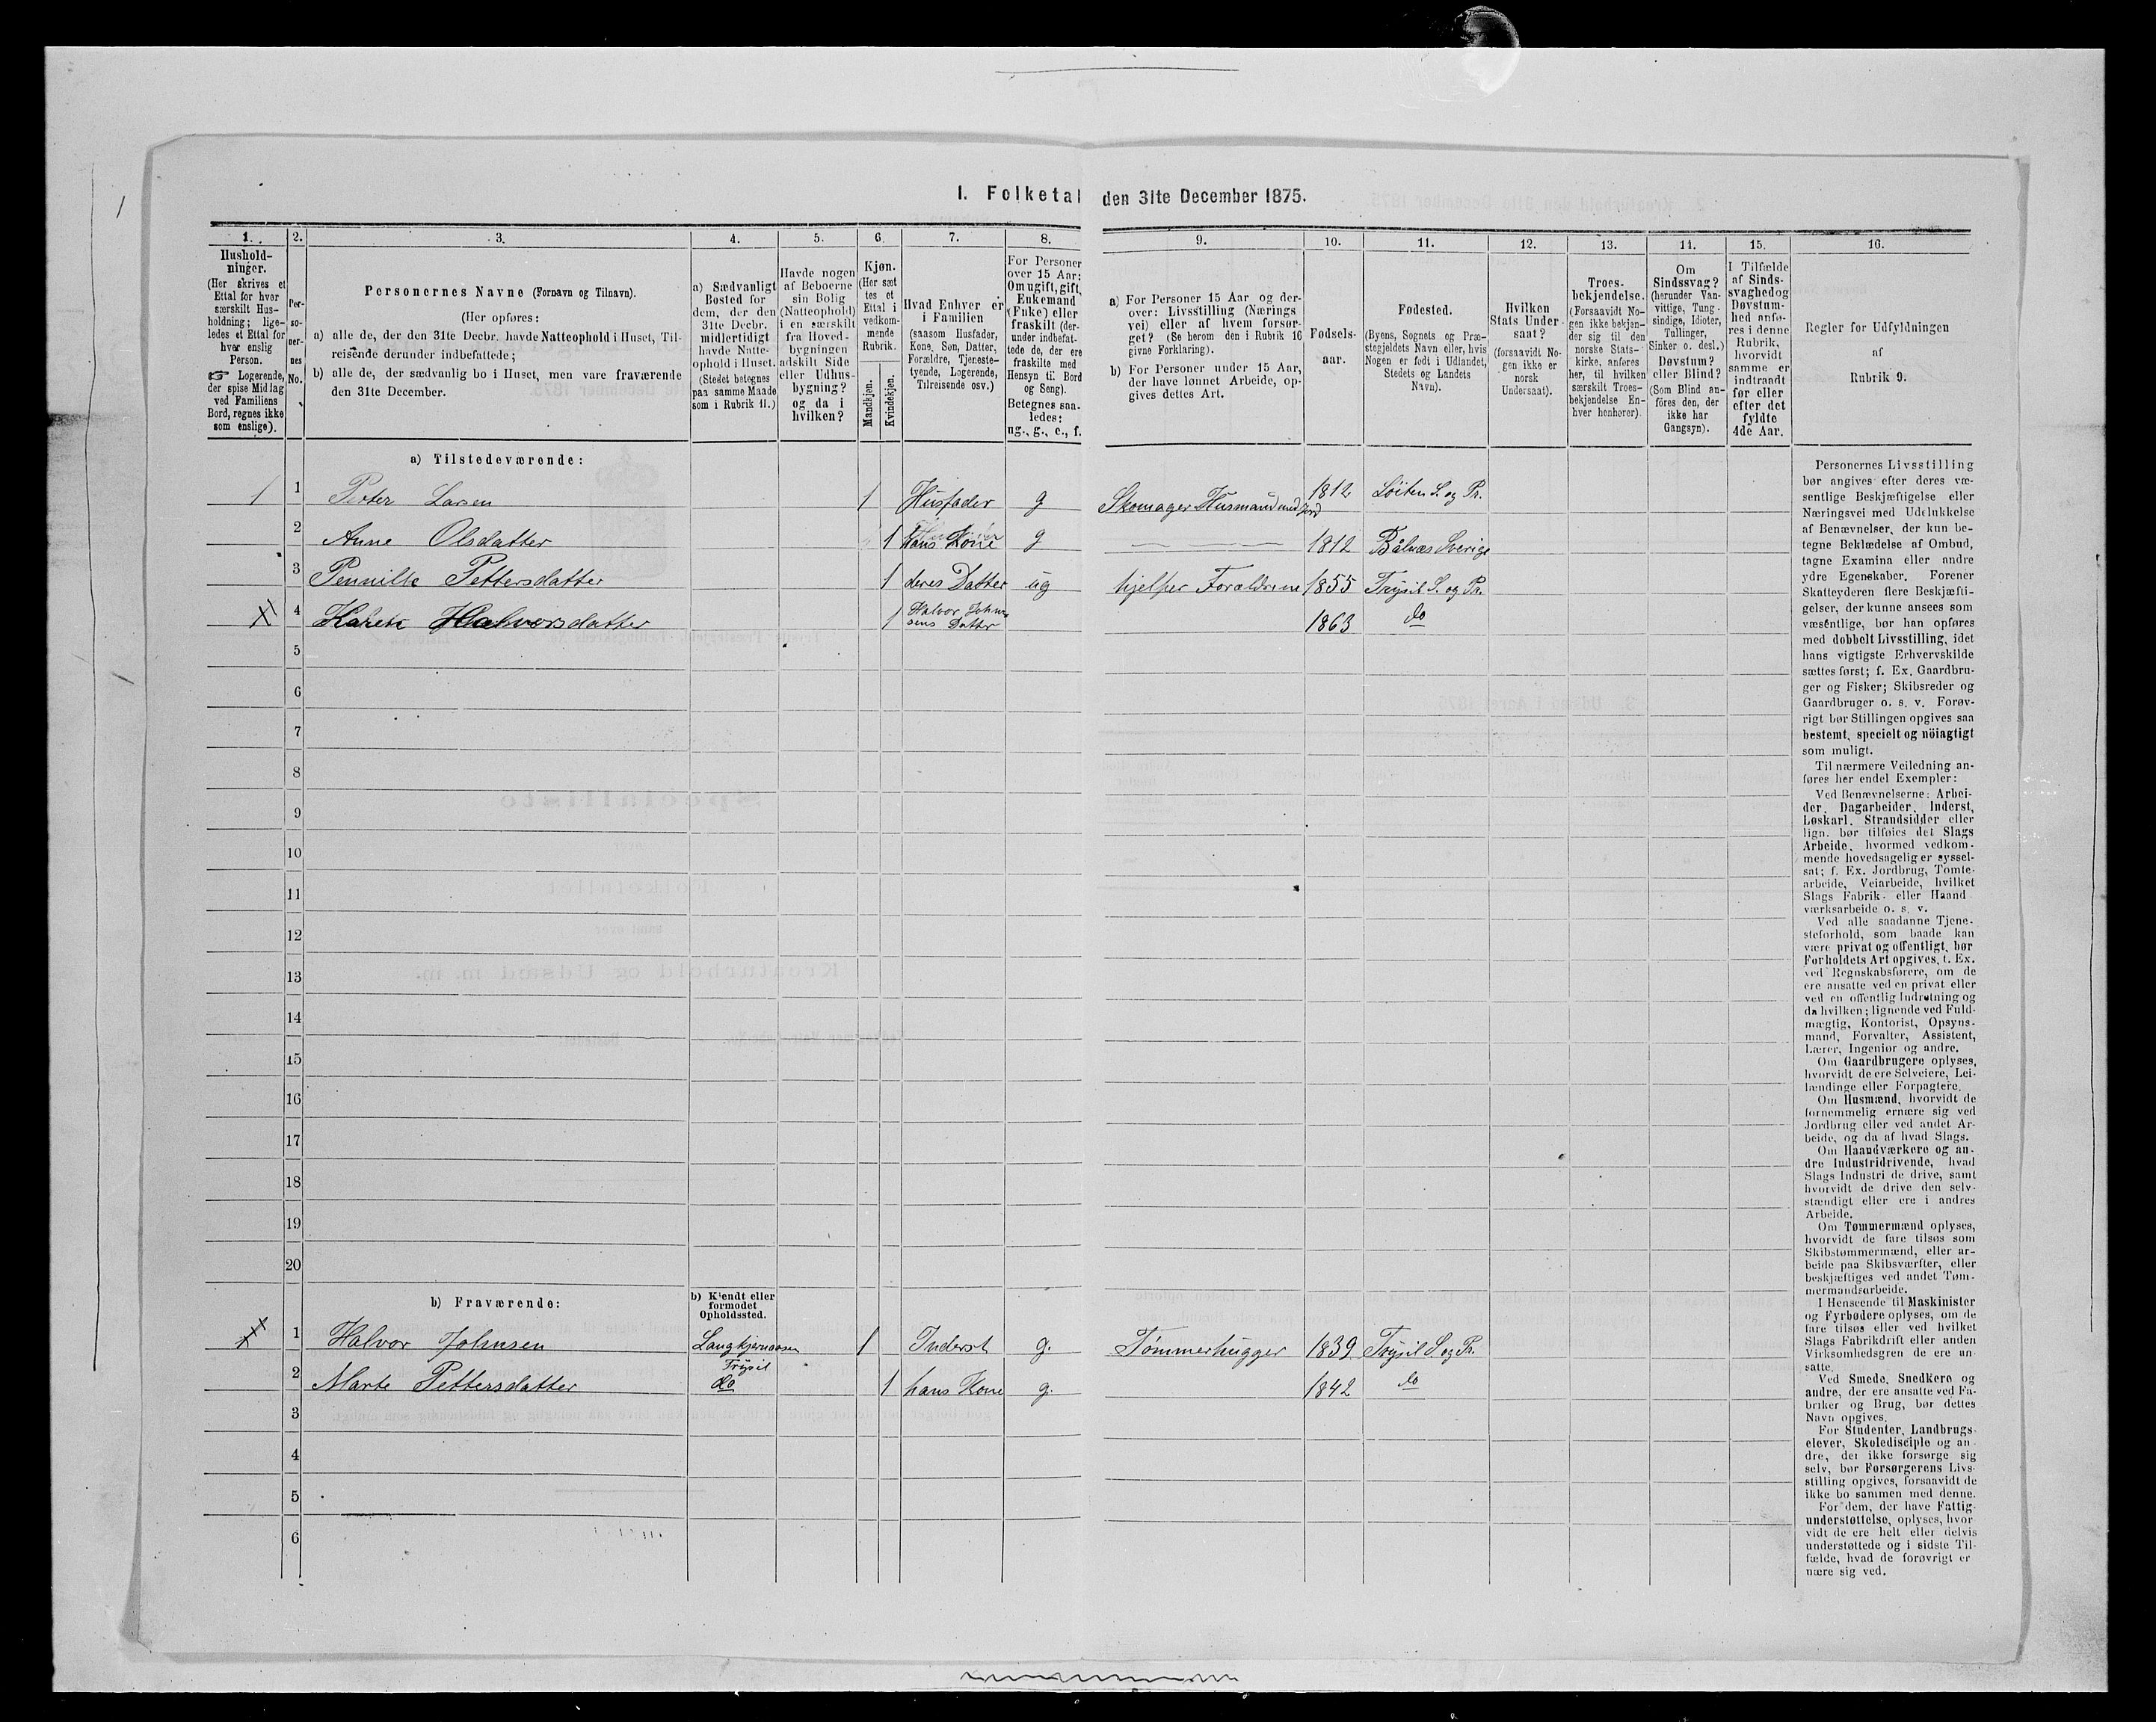 I. Folketal den 31te December 1875.
1.
Hushold-
ninger.
(Her skrives et
Ettal for hver
særskilt Hus-
holdning; lige-
ledes et Ettal for
hver enslig
Person.
☞ Logerende,
der spise Middag
ved Familiens
Bord, regnes ikke
som enslige).
2.
Per-
so-
ner-
nes
No.
3.
Personernes Navne (Fornavn og Tilnavn).
(Her opføres:
a) alle de, der den 31te Decbr. havde Natteophold i Huset, Til-
reisende derunder indbefattede;
b) alle de, der sædvanlig bo i Huset, men vare fraværende
den 31te December.
4.
a) Sædvanligt
Bosted for
dem, der den
31te Decbr.
midlertidigt
havde Natte-
ophold i Huset.
(Stedet betegnes
paa samme Maade
som i Rubrik 11.)
5.
Havde nogen
af Beboerne
sin Bolig
(Natteophold)
i en særskilt
fra Hoved-
bygningen
adskilt Side
eller Udhus-
bygning?
og da i
hvilken?
6.
Kjøn.
(Her sæt
tes et
Ettal i
vedkom-
mende
Rubrik.
Mandkjøn.
Kvindekjøn.
7.
Hvad Enhver er
i Familien
(saasom Husfader,
Kone, Søn, Datter,
Forældre, Tjeneste-
tyende, Logerende,
Tilreisende osv.)
8.
For Personer
over 15 Aar:
Om ugift, gift,
Enkemand
(Enke) eller
fraskilt (der-
under indbefat-
tede de, der ere
fraskilte med
Hensyn til Bord
og Seng).
Betegnes saa-
ledes:
ug., g., e., f.
9.
a) For Personer 15 Aar og der-
over: Livsstilling (Nærings
vei) eller af hvem forsør-
get? (Se herom den i Rubrik 16
givne Forklaring).
b) For Personer under 15 Aar,
der have lønnet Arbeide, op-
gives dettes Art.
10.
Fødsels-
aar.
11.
Fødested.
(Byens, Sognets og Præ-
stegjeldets Navn eller, hvis
Nogen er født i Udlandet,
Stedets og Landets
Navn).
12.
Hvilken
Stats Under-
saat?
(forsaavidt No-
gen ikke er
norsk
Undersaat).
13.
Troes-
bekjendelse.
(Forsaavidt No-
gen ikke bekjen-
der sig til den
norske Stats-
kirke, anføres
her, til hvilken
særskilt Troes-
bekjendelse En-
hver henhører).
14.
Om
Sindssvag?
(herunder Van-
vittige, Tung-
sindige, Idioter,
Tullinger,
Sinker o. desl.)
Døvstum?
eller Blind?
(Som Blind an-
føres den, der
ikke har
Gangsyn).
15.
I Tilfælde
af Sinds-
svaghed og
Døvstum-
hed anfø-
res i denne
Rubrik,
hvorvidt
samme er
indtraadt
før eller
efter det
fyldte
4de Aar.
16.
Regler for Udfyldningen
af
Rubrik 9.
a) Tilstedeværende:
1 1 Petter Larsen 1 Husfader g Skomager Husmand med Jord 1812 Löiten S. og Pr.
2 Anne Olsdatter 1 hans Kone g — — 1812 Bålnæs Sverige
3 Pernille Pettersdatter 1 deres Datter ug hjelper Forældrene 1855 Trysil S. og Pr.
X 4 Karen Halvorsdatter 1 Halvor Johnsens Datter 1863 do
5
6
7
8
9
10
11
12
13
14
15
16
17
18
19
20
b) Fraværende:
b) Kjendt eller
formodet
Opholdssted.
1 Halvor Johnsen Langkjernaasen Trysil 1 Inderst g. Tømmerhugger 1839 Trysil S. og Pr.
2 Marte Pettersdatter do 1 hans Kone g. 1842 do
3
4
5
6
Personernes Livsstilling
bør angives efter deres væ-
sentlige Beskjæftigelse eller
Næringsvei med Udelukkelse
af Benævnelser, der kun be-
tegne Beklædelse af Ombud,
tagne Examina eller andre
ydre Egenskaber. Forener
Skatteyderen flere Beskjæfti-
gelser, der kunne ansees som
væsentlige, bør han opføres
med dobbelt Livsstilling, idet
hans vigtigste Erhvervskilde
sættes først; f. Ex. Gaardbru-
ger og Fisker; Skibsreder og
Gaardbruger o. s. v. Forøv-
rigt bør Stillingen opgives saa
bestemt, specielt og nöiagtigt
som muligt.
Til nærmere Veiledning an-
føres her endel Exempler:
Ved Benævnelserne: Arbei-
der, Dagarbeider, Inderst,
Løskarl, Strandsidder eller
lign. bør tilføies det Slags
Arbeide, hvormed vedkom-
mende hovedsagelig er syssel-
sat; f. Ex. Jordbrug, Tomte-
arbeide, Veiarbeide, hvilket
Slags Fabrik- eller Haand
værksarbeide o. s. v.
Ved alle saadanne Tjene-
steforhold, som baade kan
være privat og offentligt, bør
Forholdets Art opgives, f. Ex.
ved Regnskabsførere, om de
ere ansatte ved en privat eller
ved en offentlig Indretning og
da hvilken; lignende ved Fuld-
mægtig, Kontorist, Opsyns-
mand, Forvalter, Assistent,
Lærer, Ingeniør og andre.
Om Gaardbrugere oplyses,
hvorvidt de ere Selveiere, Lei-
lændinge eller Forpagtere.
Om Husmænd, hvorvidt de
fornemmelig ernære sig ved
Jordbrug eller ved andet Ar-
beide, og da af hvad Slags.
Om Haandværkere og an-
dre Industridrivende, hvad
Slags Industri de drive, samt
hvorvidt de drive den selv-
stændigt eller ere i andres
Arbeide.
Om Tømmermænd oplyses,
hvorvidt de fare tilsøs som
Skibstømmermænd, eller ar-
beide paa Skibsværfter, eller
beskjæftiges ved andet Tøm-
mermandsarbeide.
I Henseende til Maskinister
og Fyrbødere oplyses, om de
fare tilsøs eller ved hvilket
Slags Fabrikdrift eller anden
Virksomhedsgren de ere an-
satte.
Ved Smede, Snedkere og
andre, der ere ansatte ved Fa-
briker og Brug, bør dettes
Navn opgives.
For Studenter, Landbrugs-
elever, Skoledisciple og an-
dre, der ikke forsørge sig
selv, bør Forsørgerens Livs-
stilling opgives, forsaavidt de
ikke bo sammen med denne.
For dem, der have Fattig-
understøttelse, oplyses, hvor-
vidt de ere helt eller delvis
understøttede og i sidste Til-
fælde, hvad de forøvrigt er
nære sig ved.